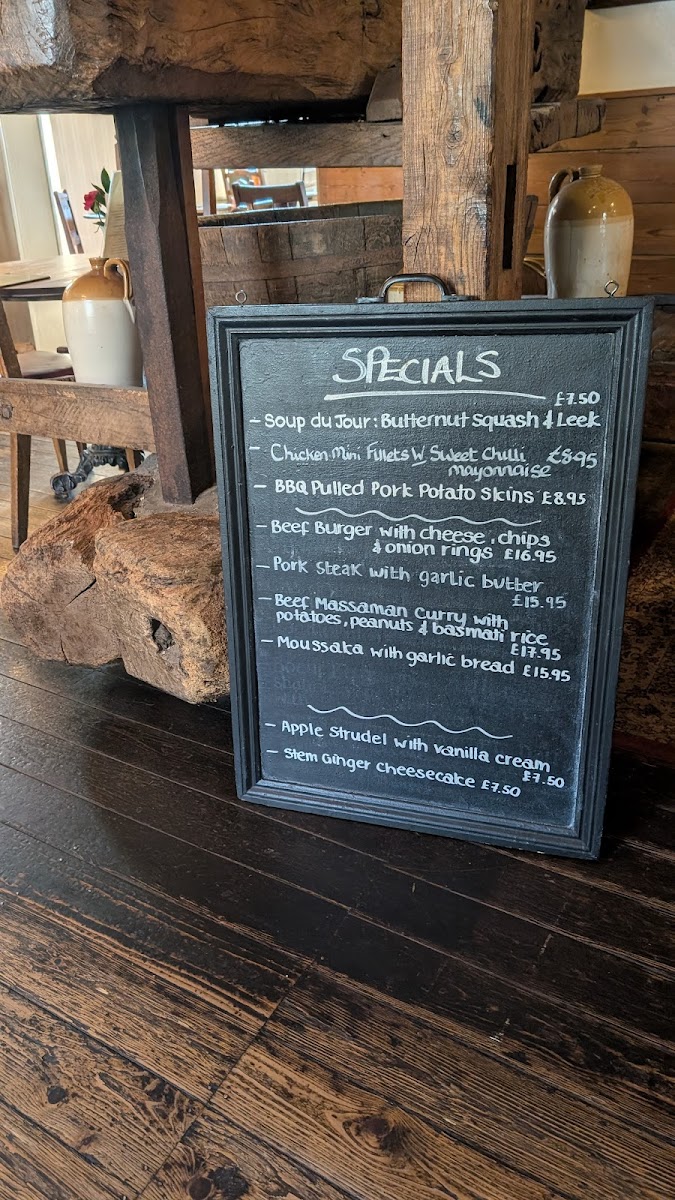 SPECIALS
£7.50
- Soup du Jour: Butternut squash & Leek
- Chicken Mini Fillets W Sweet Chilli £8.95
mayonnaise
- BBQ Pulled Pork Potato skins £8.95
- Beef Burger with cheese, chips
& onion rings £16.95
- Pork steak with garlic butter
£15.95
- Beef Massaman Curry with
potatoes, peanuts & basmati rice
£17.95
- Moussaka with garlic bread £15.95
- Apple strudel with vanilla cream
£7.50
- Stem Ginger cheesecake £7.50